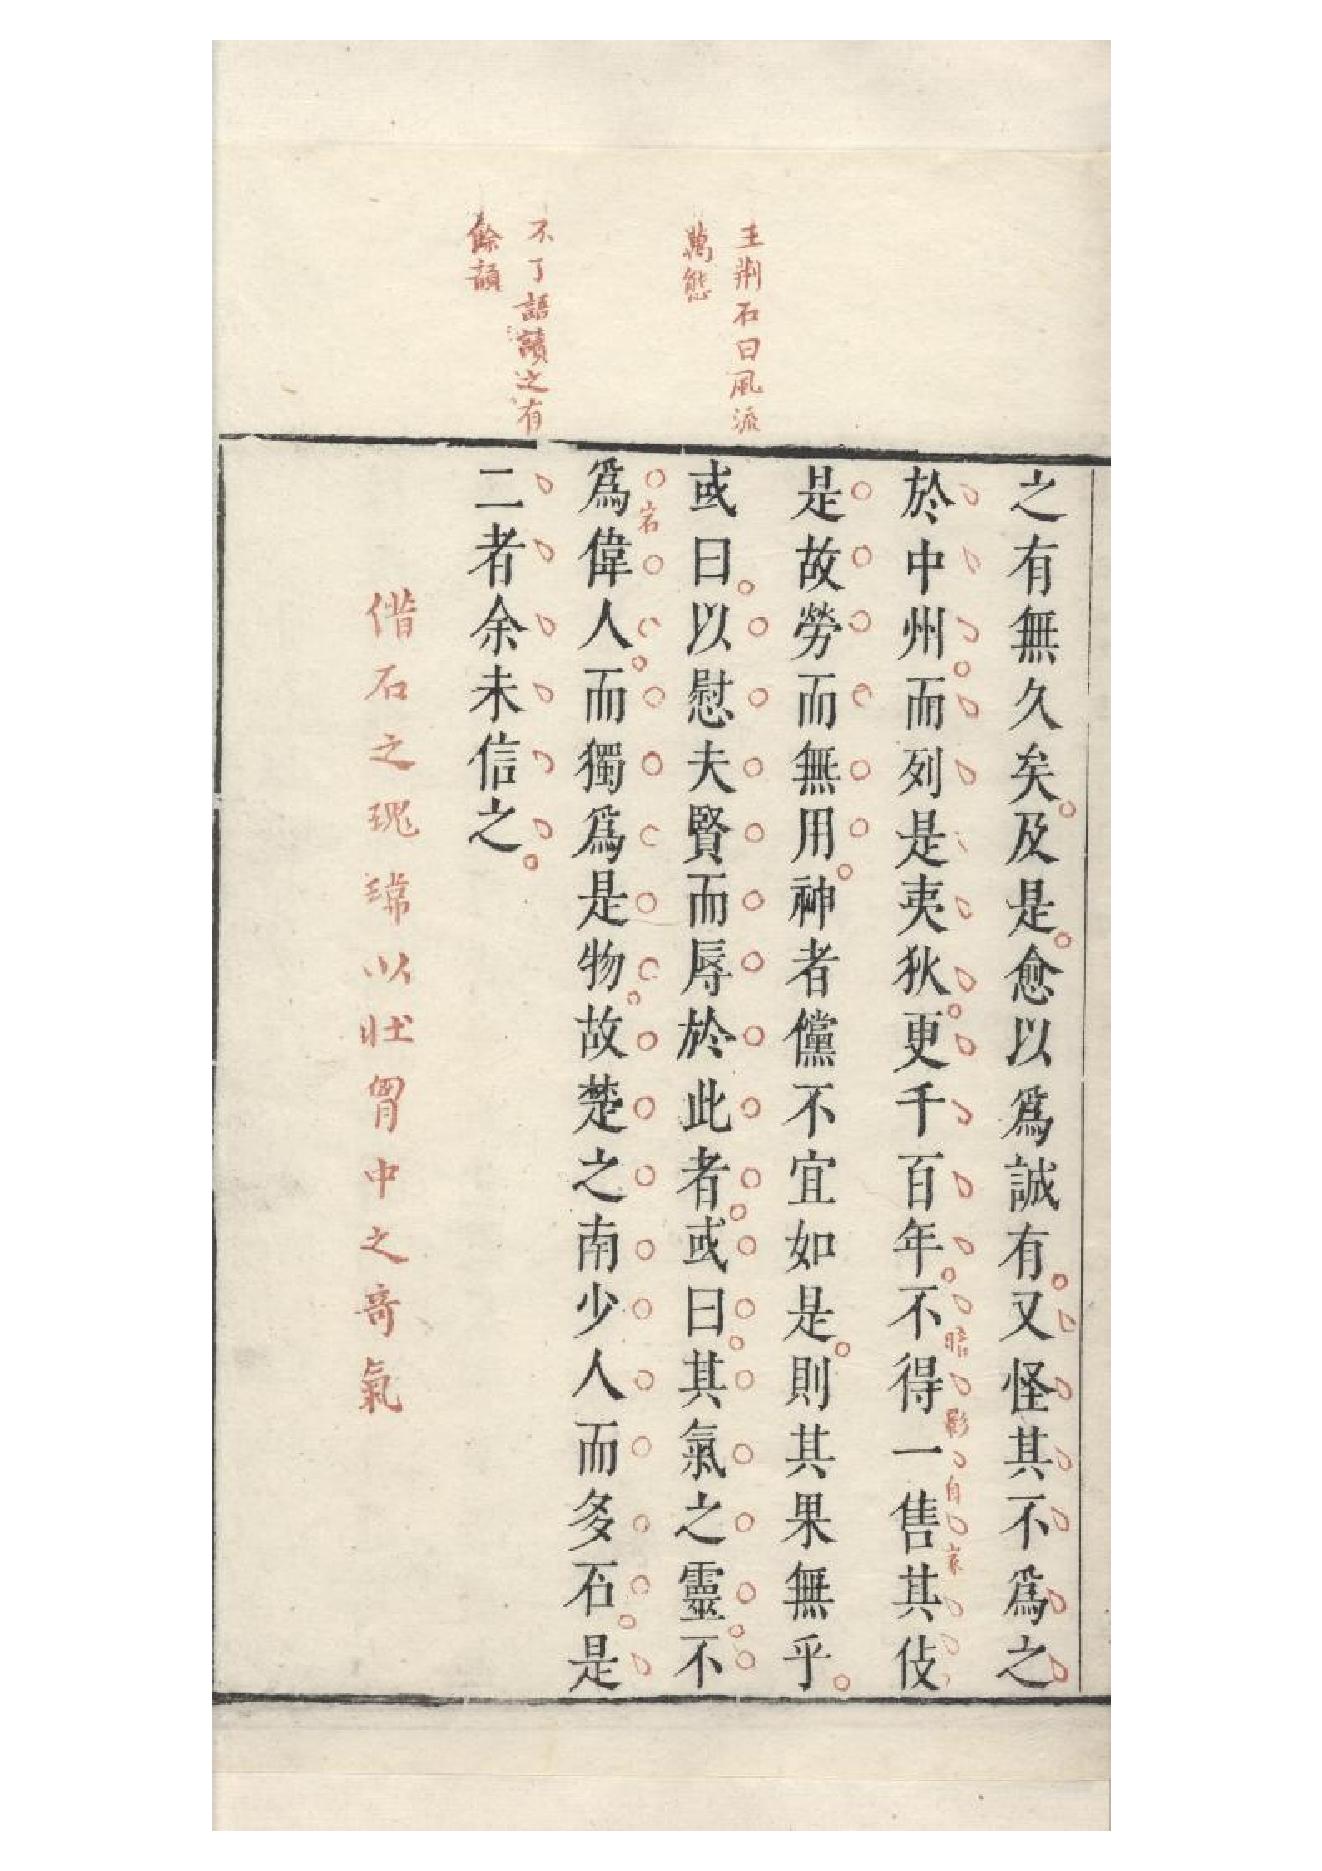 王荊石曰風流
萬態
不了語讀之有
餘韻
之有無久矣及是愈以爲誠有又怪其不爲之
於中州而列是夷狄更千百年不得一售其伎
暗影自哀
是故勞而無用神者儻不宜如是則其果無乎
或曰以慰夫賢而辱於此者或曰其氣之靈不
爲偉人而獨爲是物故楚之南少人而多石是
二者余未信之
借石之瑰瑋以壯胷中之奇氣